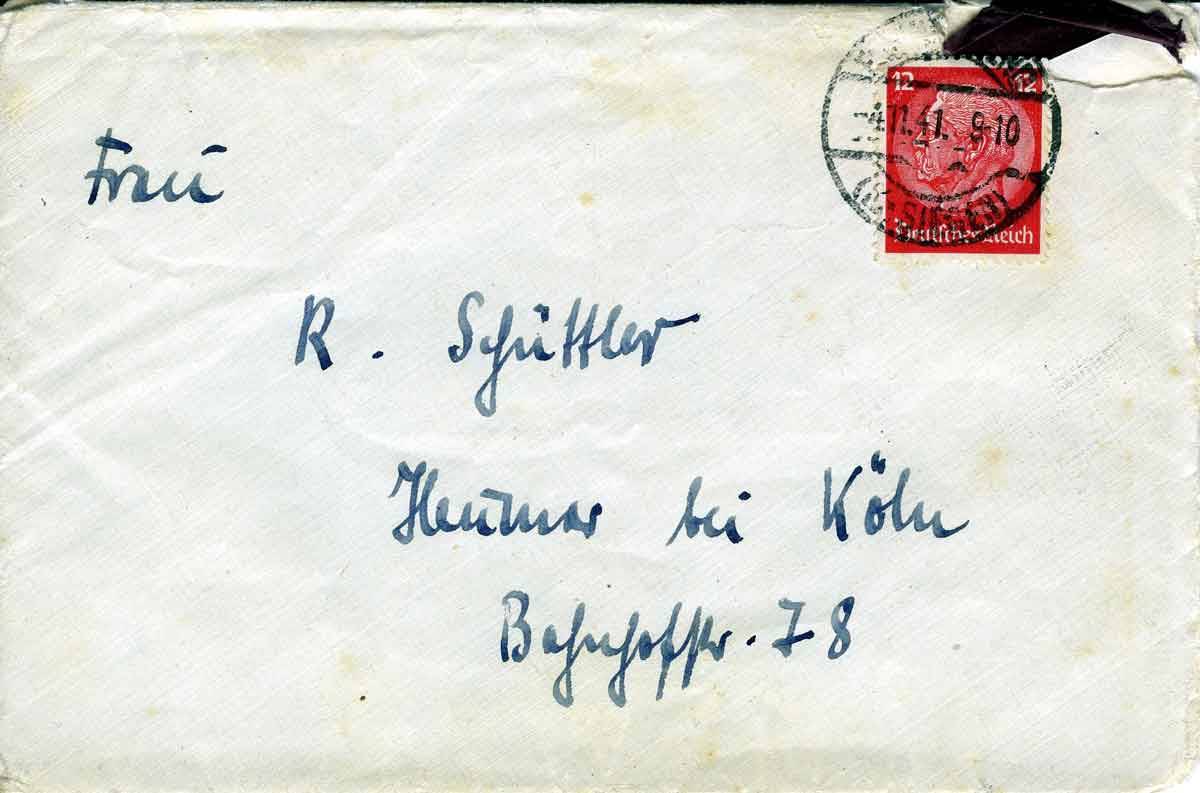 12 12
4.11.41. 9-10
Deutsches Reich
Frau
R. Schüttler
Heumar bei Köln
Bahnhofstr. 78